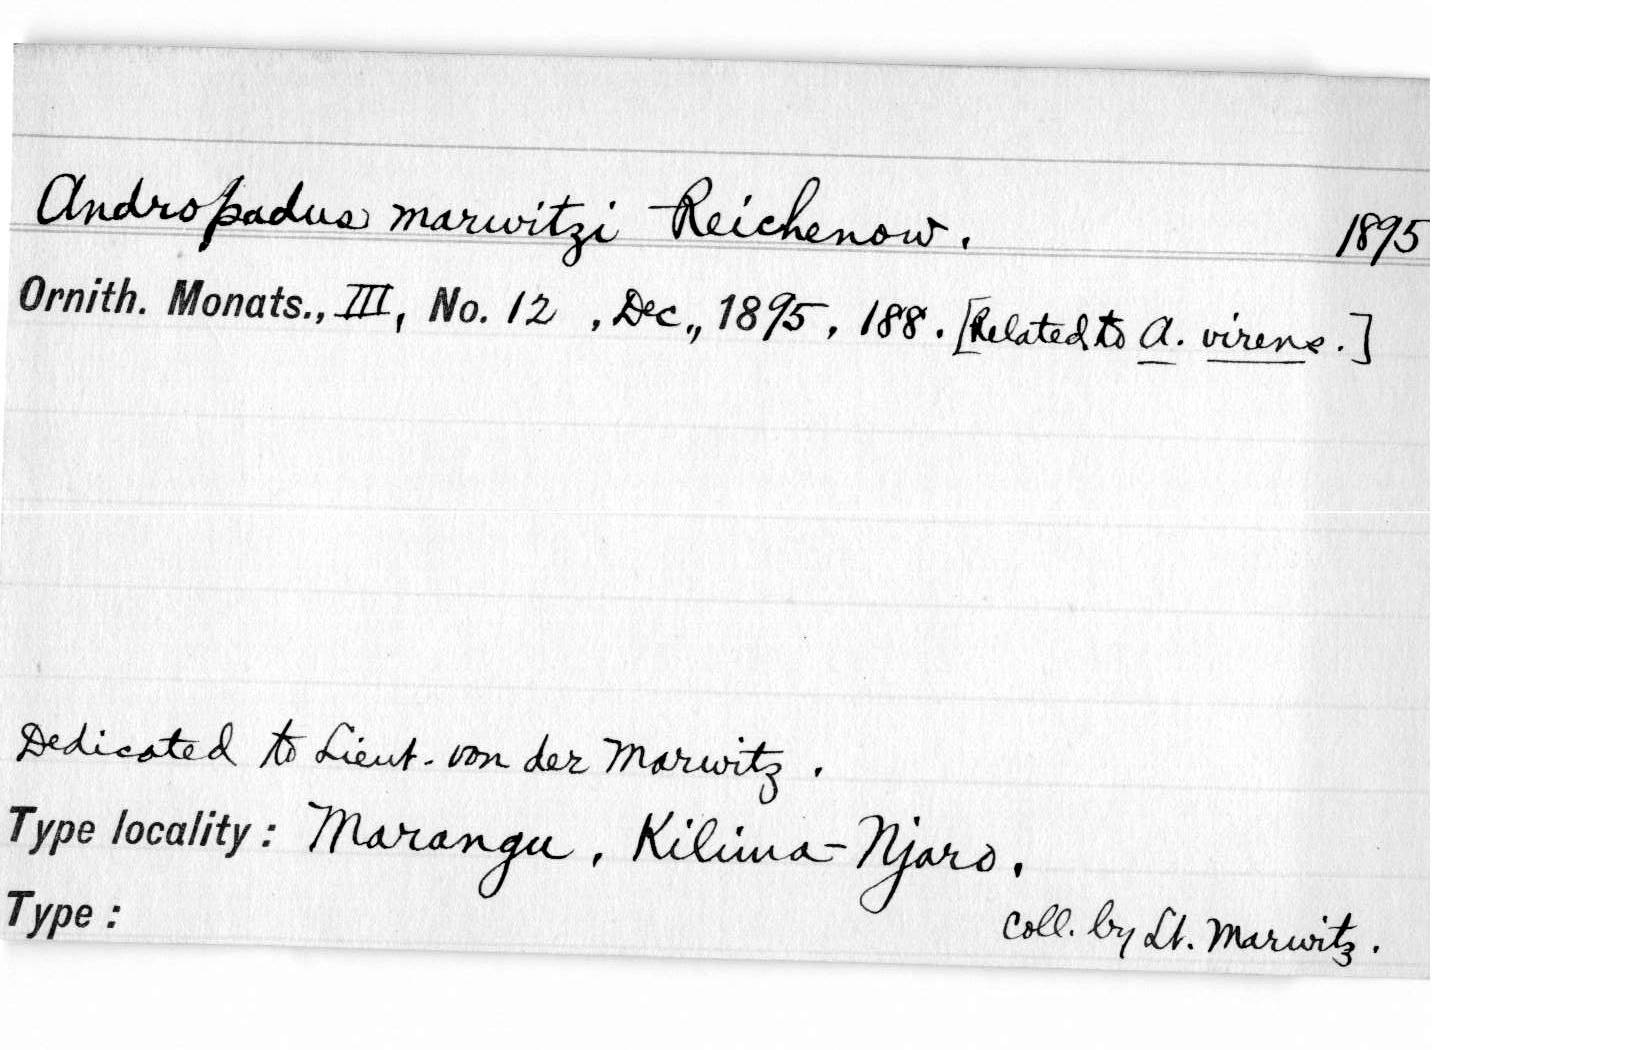 Andropadus marwitzi Reichenow. 1895
Ornith. Monats., III, No. 12 , Dec., 1895, 188. [Related to A. virens.]
Dedicated to Lieut. von der Marwitz.
Type locality: Marangu, Kilima-Njaro.
Type: coll. by Lt. Marwitz.